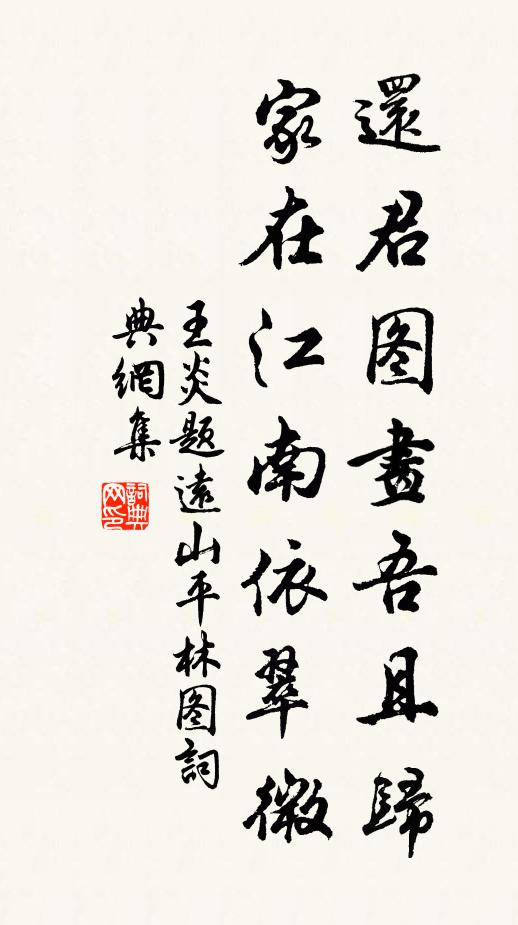 還君图畫吾且歸
家在江南依翠微
王炎題遠山平林图詞
典網集
詞典网印